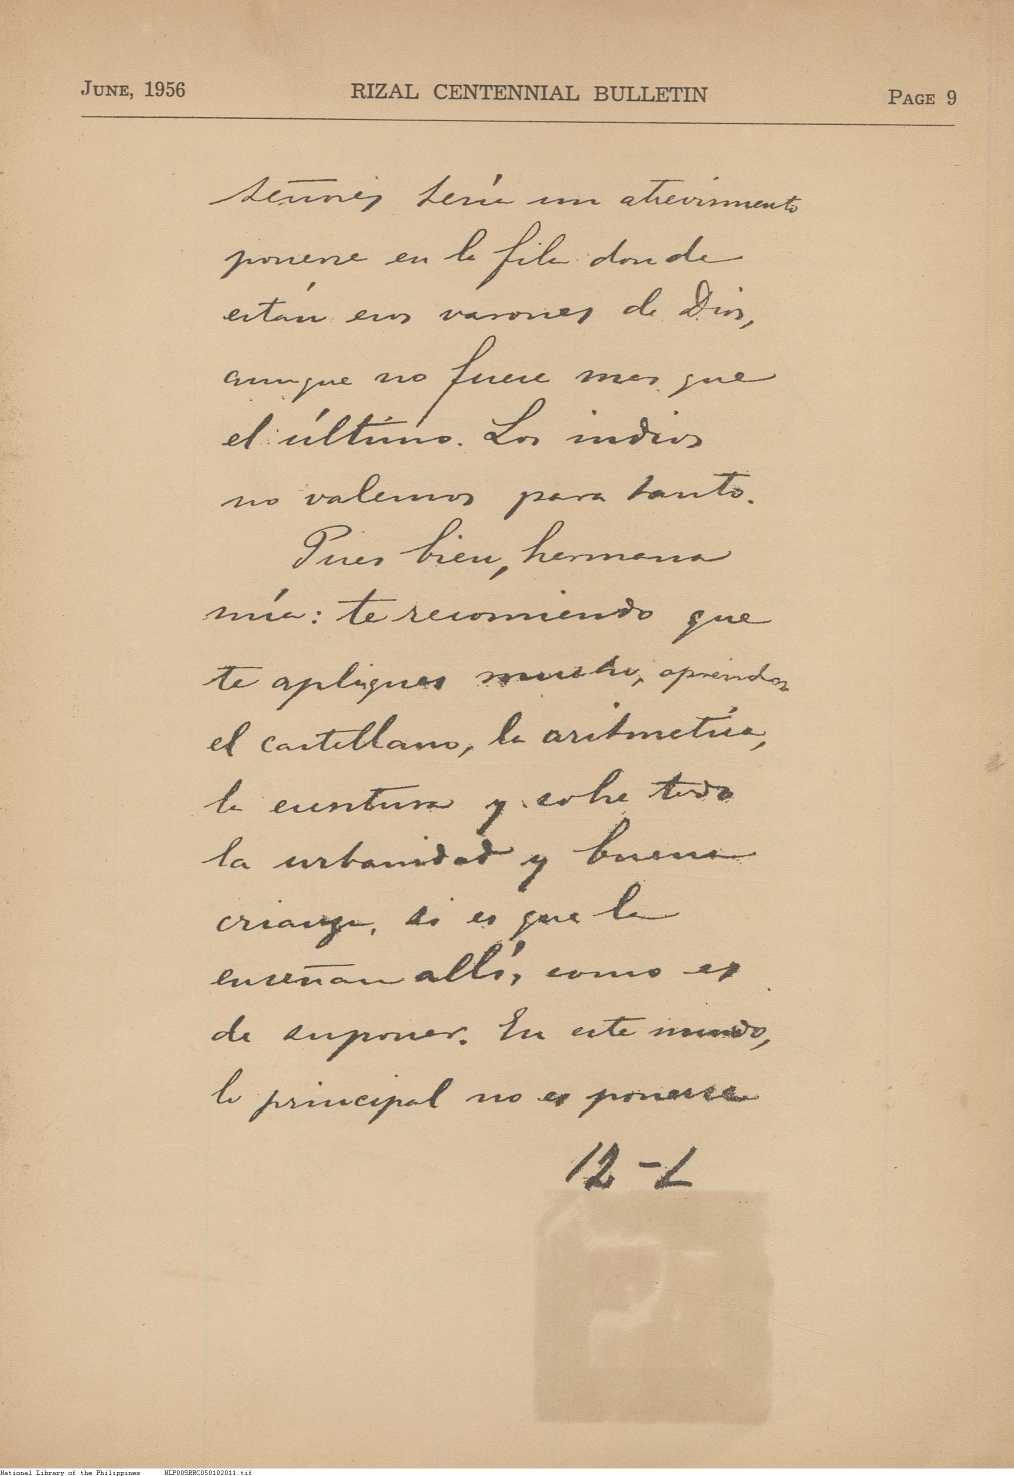 JUNE, 1956 RIZAL CENTENNIAL BULLETIN PAGE 9
señores sería un atrevimiento
ponerse en la fila donde
están esos varones de Dios,
aunque no fuese mas que
el último. Los indios
no valemos para tanto.
Pues bien, hermana
mía: te recomiendo que
te apliques mucho, aprendas
el castellano, la aritmética,
la escritura y sobre todo
la urbanidad y buena
crianza, si es que la
enseñan allí, como es
de suponer. En este mundo,
lo principal no es ponerse
12-L
National Library of the Philippines NLP00SRRC050102011.tif